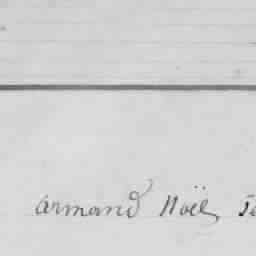 armand Noël